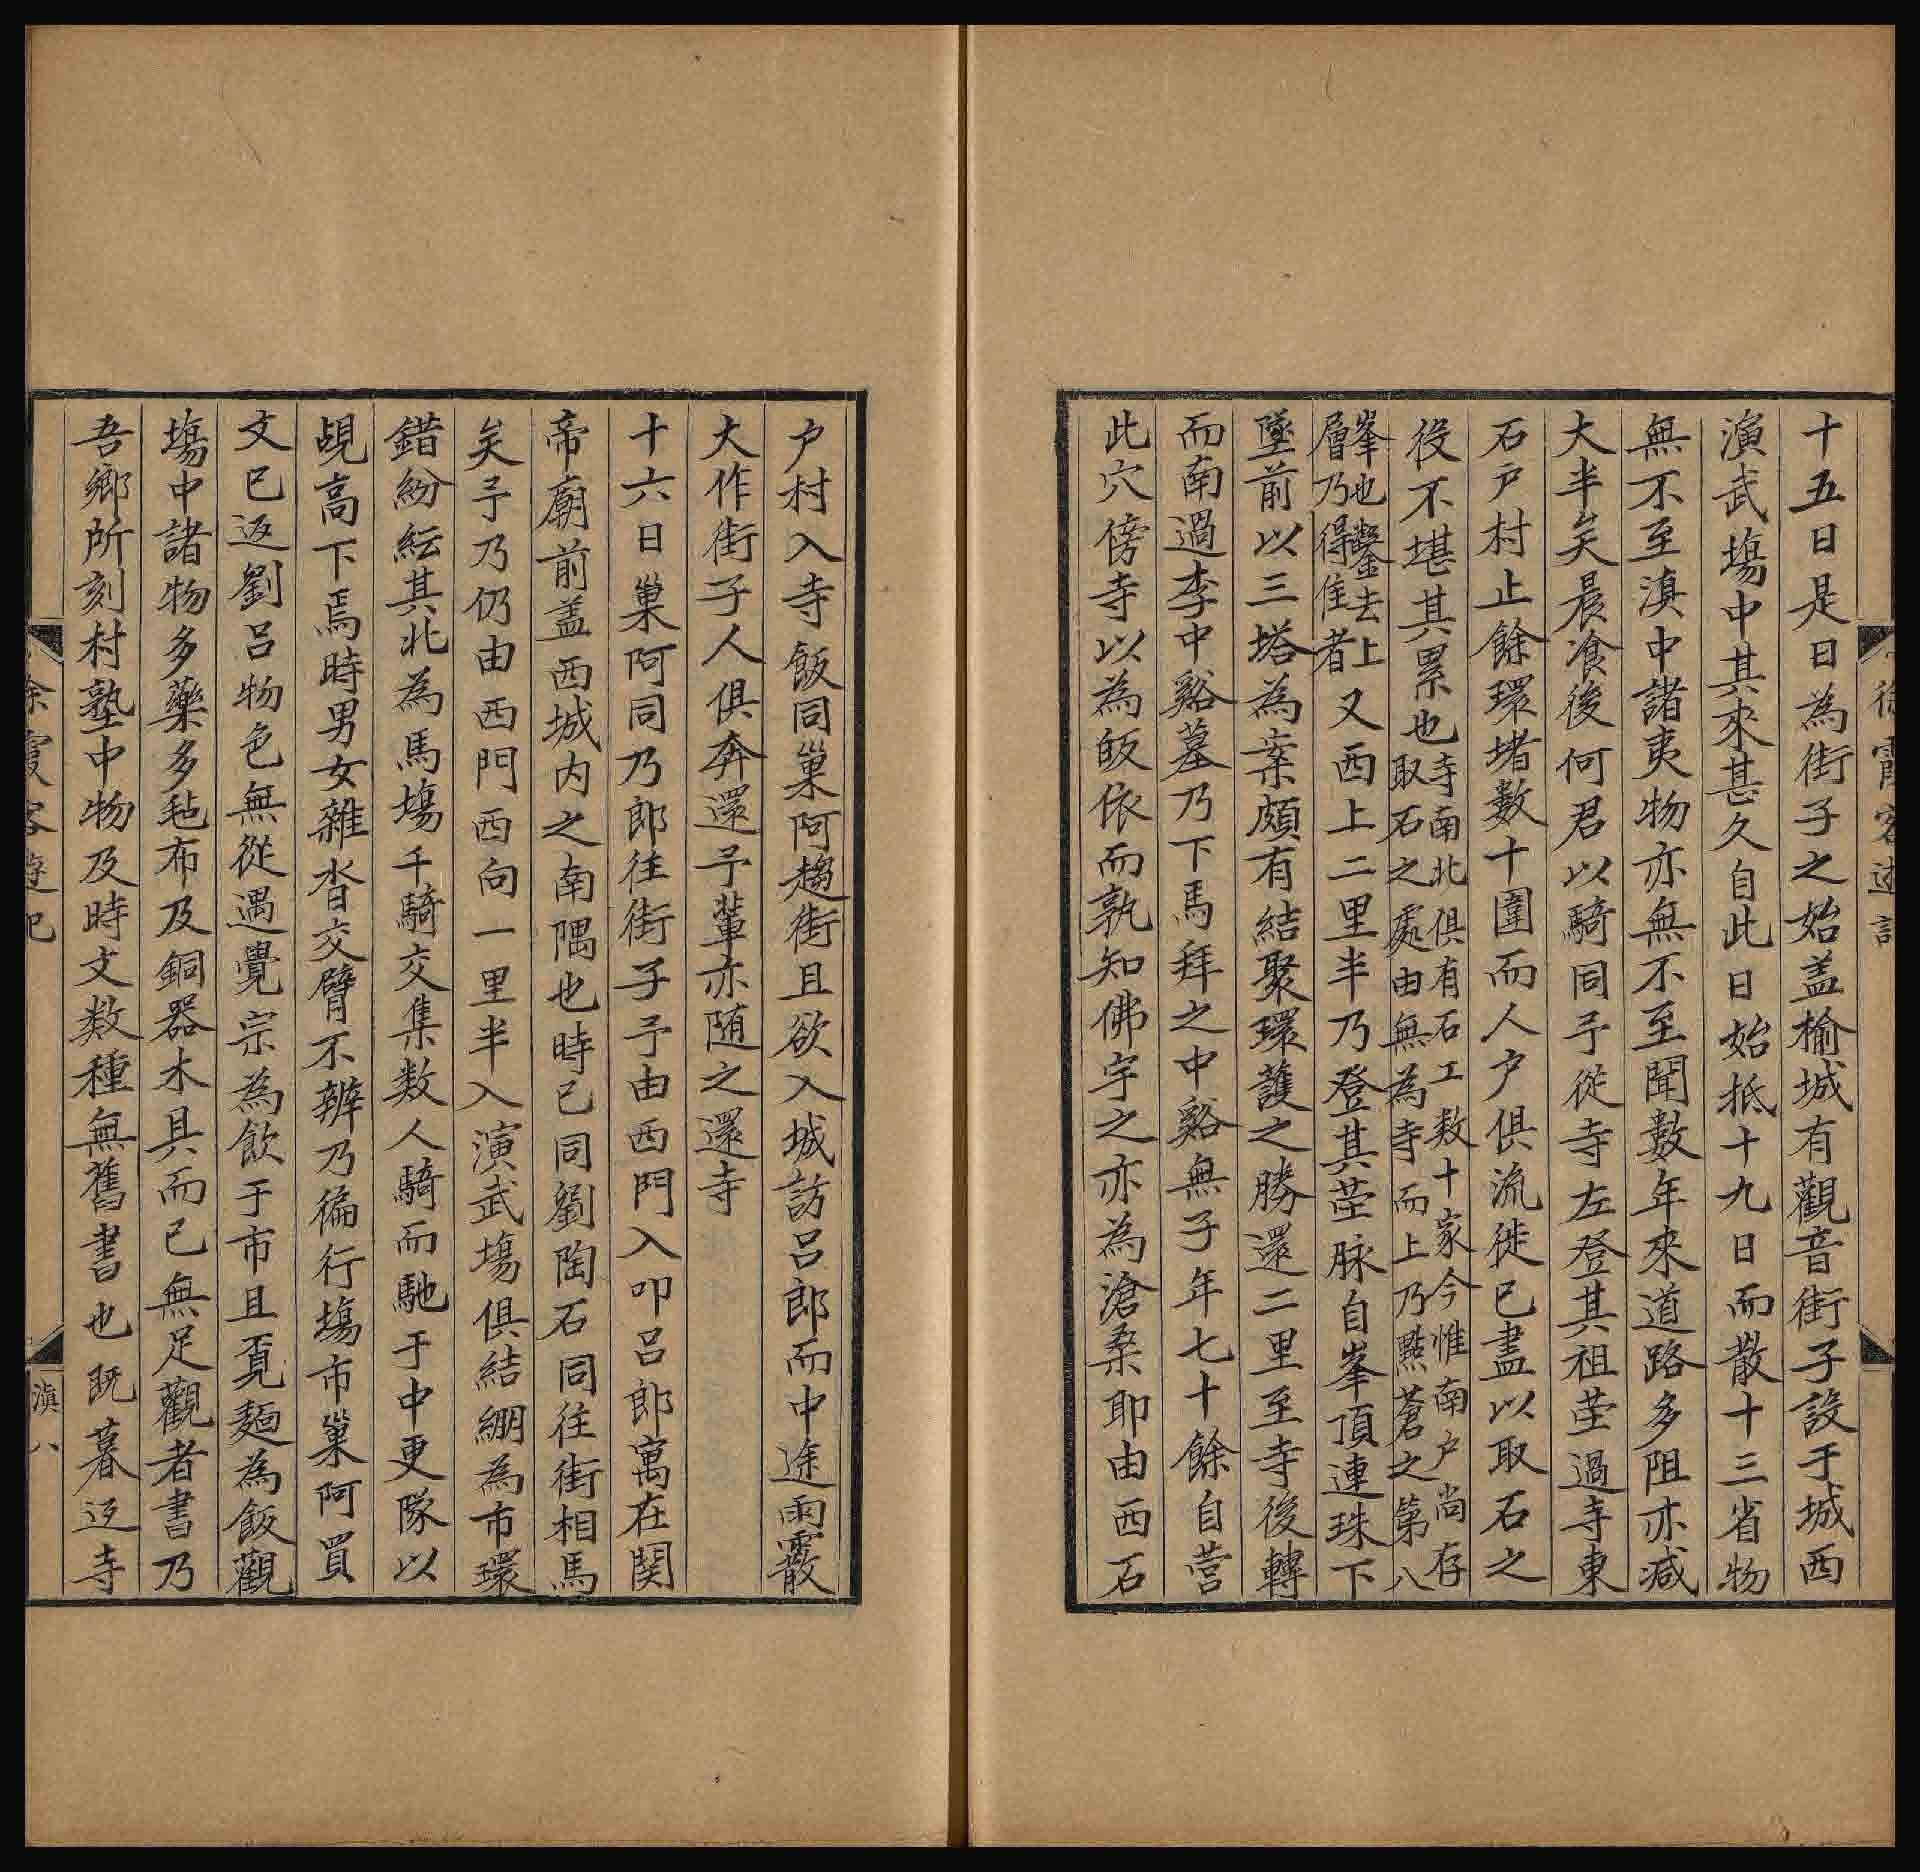 十五日是日為街子之始盖榆城有觀音街子設于城西
演武塲中其來甚久自此日始抵十九日而散十三省物
無不至滇中諸夷物亦無不至聞數年來道路多阻亦减
大半矣晨飡後何君以騎同予從寺左登其祖塋過寺東
石戸村止餘環堵數十圍而人户俱流徙已盡以取石之
役不堪其累也寺南北俱有石工数十家今惟南户尚存
取石之處由無為寺而上乃㸃蒼之第八
峯也鑿去上
層乃得佳者又西上二里半乃登其塋脉自峯頂連珠下
墜前以三塔為案頗有結聚環護之勝還二里至寺後轉
而南過李中谿墓乃下馬拜之中谿無子年七十餘自營
此穴傍寺以為皈依而孰知佛宇之亦為滄桑耶由西石
户村入寺飯同巢阿趨街且欲入城訪吕郎而中途雨霰
大作街子人俱奔還予輩亦随之還寺
十六日巢阿同乃郎往街子予由西門入叩吕郎寓在関
帝廟前盖西城内之南隅也時已同劉陶石同往街相馬
矣予乃仍由西門西向一里半入演武塲俱結綳為市環
錯紛紜其北為馬塲千騎交集数人騎而馳于中更隊以
覘高下焉時男女雜沓交臂不辨乃徧行塲市巢阿買
文已返劉吕物色無從遇覺宗為飲于市且覔麺為飯觀
塲中諸物多藥多毡布及銅器木具而已無足觀者書乃
吾鄉所刻村塾中物及時文数種無舊書也既暮返寺
徐霞客遊記
滇八